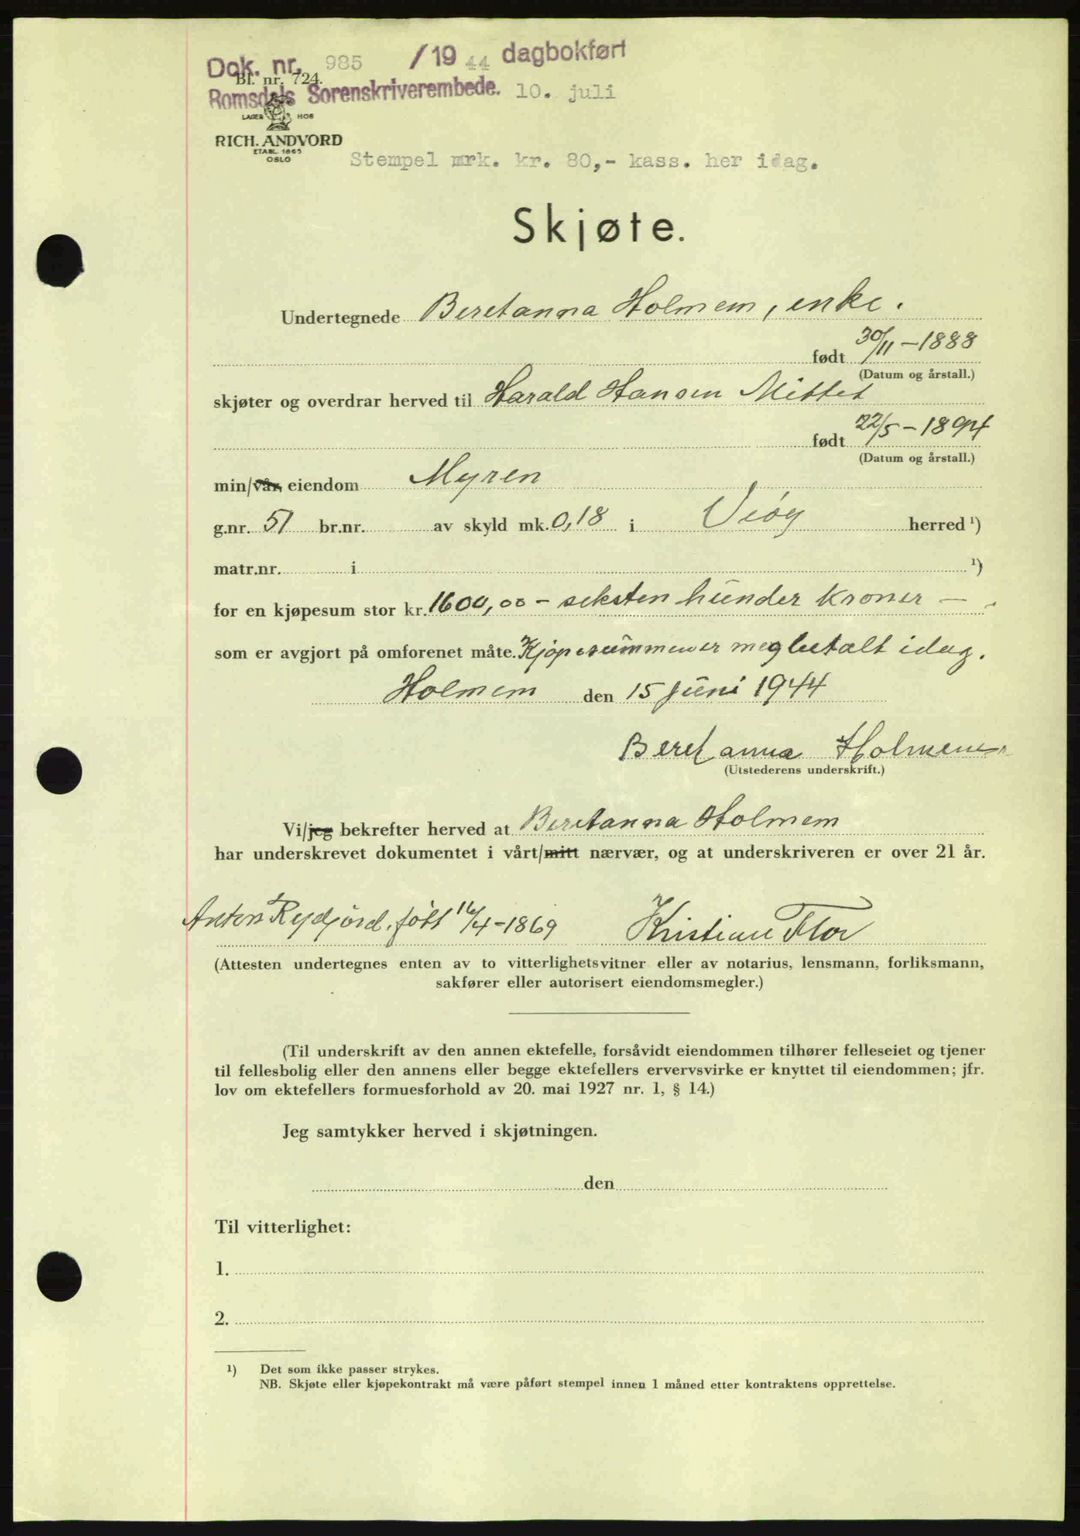 Dok. nr. 985 /1944 dagbokført
Bl. nr. 724.
Romsdals Sorenskriverembede. 10. juli
LAGER HOS
RICH. ANDVORD
ETABL. 1865
OSLO
Stempel mrk. kr. 80,- kass. her idag.
Skjøte.
Undertegnede Beretanna Holmem, enke.
født 30/11-1888
(Datum og årstall.)
skjøter og overdrar herved til Harald Hansen Mittet
født 22/5-1894
(Datum og årstall.)
min/vår eiendom Myren
g.nr. 51 br.nr. av skyld mk. 0,18 i Veøy herred ¹)
matr.nr. i ¹)
for en kjøpesum stor kr. 1600,00 - seksten hunder kroner -
som er avgjort på omforenet måte. Kjøpesummen er meg betalt idag.
Holmem den 15 juni 1944
Beretanna Holmem
(Utstederens underskrift.)
Vi/jeg bekrefter herved at Beretanna Holmem
har underskrevet dokumentet i vårt/mitt nærvær, og at underskriveren er over 21 år.
Anton Rydjörd. født 16/4-1869 Kristian Flor
(Attesten undertegnes enten av to vitterlighetsvitner eller av notarius, lensmann, forliksmann,
sakfører eller autorisert eiendomsmegler.)
(Til underskrift av den annen ektefelle, forsåvidt eiendommen tilhører felleseiet og tjener
til fellesbolig eller den annens eller begge ektefellers ervervsvirke er knyttet til eiendommen; jfr.
lov om ektefellers formuesforhold av 20. mai 1927 nr. 1, § 14.)
Jeg samtykker herved i skjøtningen.
den
Til vitterlighet:
1.
2.
¹) Det som ikke passer strykes.
NB. Skjøte eller kjøpekontrakt må være påført stempel innen 1 måned etter kontraktens opprettelse.